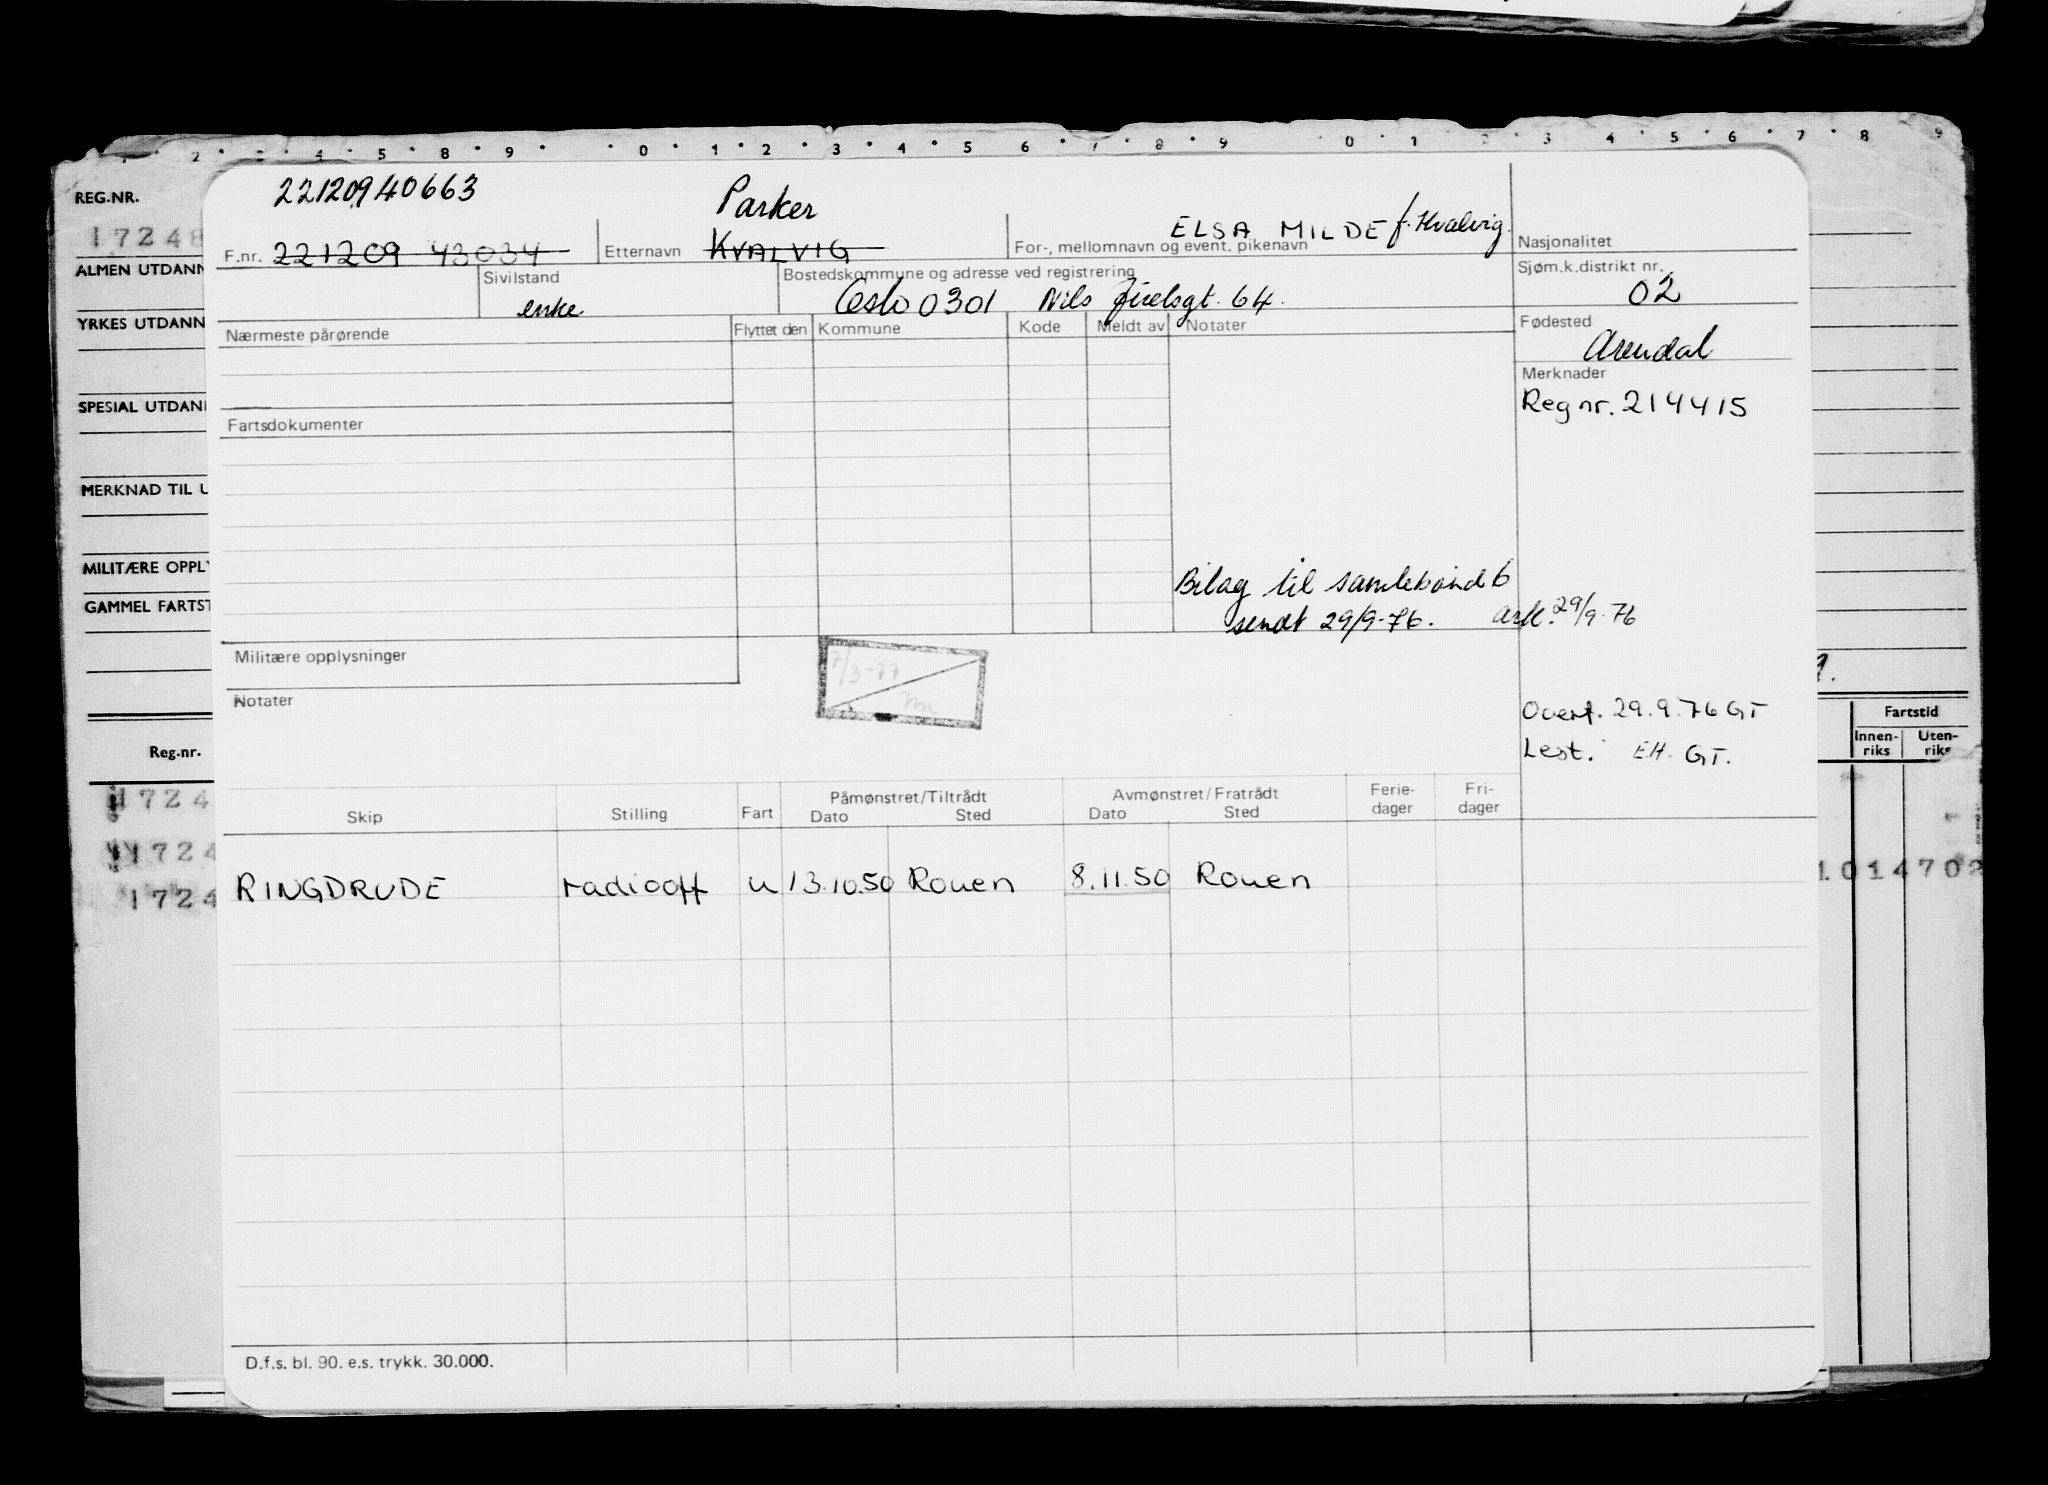 1 2 3 4 5 8 9 0 1 2 3 4 5 6 7 8 9 0 1 2 3 4 5 6 7 8 9
REG.NR.
17248
ALMEN UTDANN
YRKES UTDANN
SPESIAL UTDAN
MERKNAD TIL U
MILITÆRE OPPLY
GAMMEL FARTST
Reg.nr.
1724
1724
1724
22120940663
Parker
F.nr. 221209 43034
Etternavn KVALVIG
ELSA MILDE f. Hvalvig.
For-, mellomnavn og event. pikenavn
Nasjonalitet
Sivilstand
enke
Bostedskommune og adresse ved registrering
Oslo 0301 Nils Juelsgt. 64.
Sjøm.k.distrikt nr.
02
Nærmeste pårørende
Flyttet den
Kommune
Kode
Meldt av
Notater
Fødested
Arendal
Merknader
Reg nr. 214415
Fartsdokumenter
Bilag til samlebånd 6
sendt 29/9-76. ark. 29/9-76
Militære opplysninger
7/3-77
Notater
Overf. 29.9.76 GT
Lest. EH. GT.
Fartstid
Innen-riks
Uten-riks
Skip
Stilling
Fart
Påmønstret/Tiltrådt
Dato Sted
Avmønstret/Fratrådt
Dato Sted
Ferie-dager
Fri-dager
RINGDRUDE radiooff u 13.10.50 Rouen 8.11.50 Rouen
1014702
D.f.s. bl. 90. e.s. trykk. 30.000.